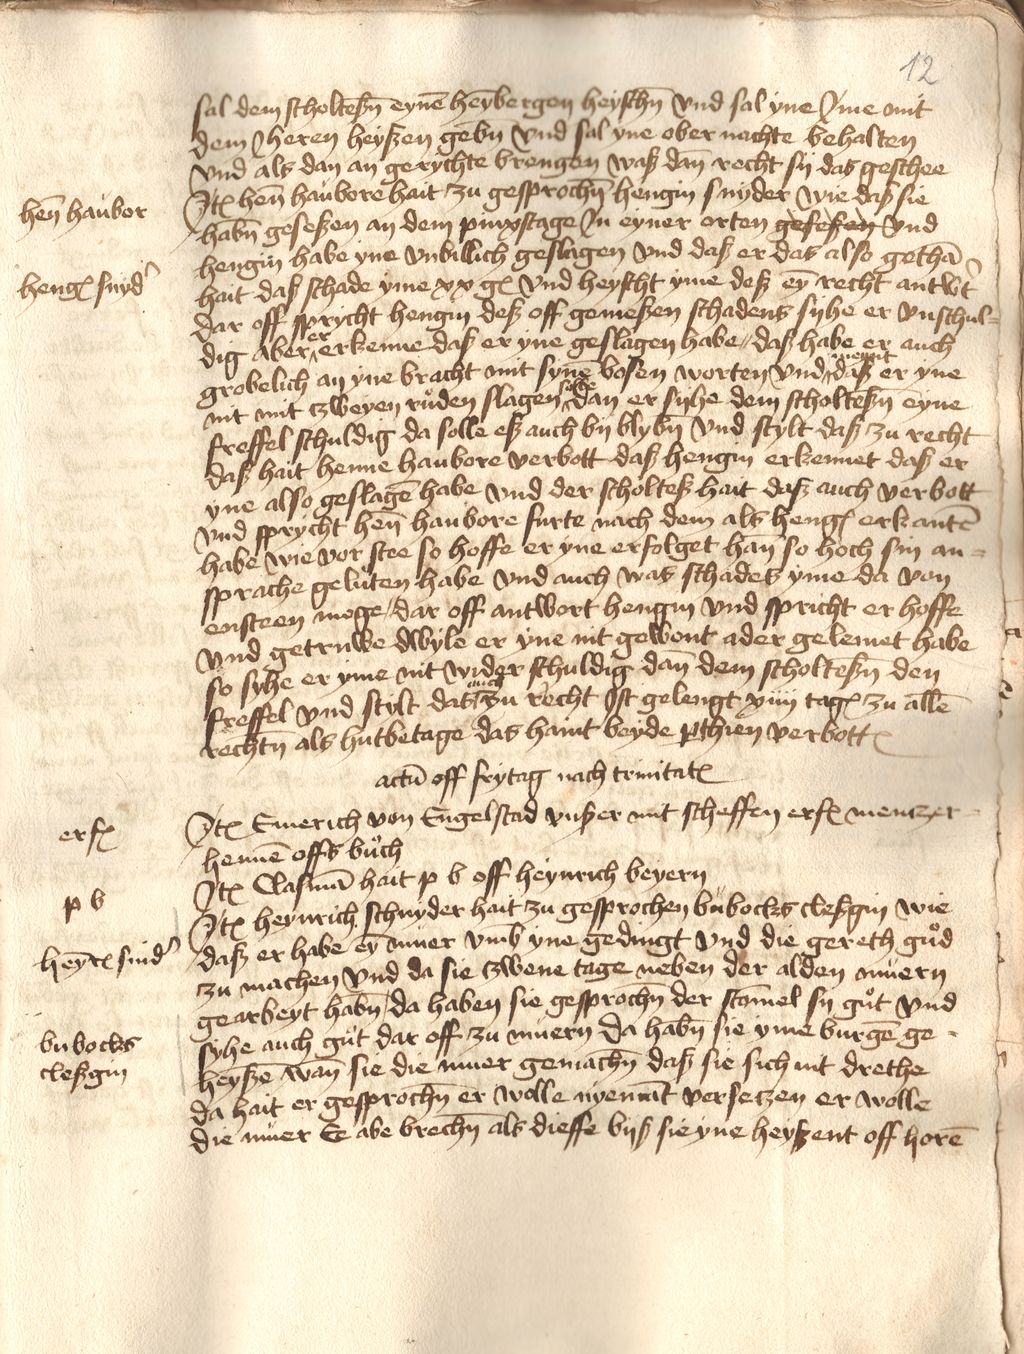 12
sal dem scholteßn eynē heymbergen heyschn vnd sal yne Jme mit
dem heren heyßen gebn vnd sal yne ober nachte behalten
vnd als dan an gerychte brengen waß dan recht sij das geschee
hen haubor
Jtē hen haubore hait zu gesprochn hengin snyder wie daß sie
habn geseßen an dem pinxstage Jn eyner orten geseßen vnd
hengin habe yne vnbillich geslagen vnd daß er das also gethā
hengē snyd'
hait daß schade yme xx gē vnd heyscht yme deß ey recht antwt
dar off sprycht hengin deß off gemeßen schadens syhe er vnschul-
dig aber er erkenne daß er yne geslagen habe daß habe er auch
grobelich an yne bracht mit syne bosen worten vnd meynt daß er yne
nit mit zweyen ruden slagen solde dan er syhe dem scholteßn eyne
freffel schuldig da solle eß auch by blybn vnd stylt daß zu recht
daß hait henne haubore verbott daß hengin erkennet daß er
yne also geslagē habe vnd der scholteß hait daß auch verbott
vnd sprycht hen haubore furte nach dem als hengē erkant
habe wie vor stee so hoffe er yne erfolget han so hoch sin an-
sprache geluten habe vnd auch was schades yme da von
ensteen moge dar off antwort hengin vnd spricht er hoffe
vnd getruwe dwyle er yne nit gewont ader gelemet habe
so syhe er yme nit wider schuldig dan dem scholteßn den
freffel vnd stylt das auch zu recht Jst gelengt xiiij tagē zu allē
rechtn als hutbetage das haint beyde pthien verbottē
actū off frytag nach trinitatē
erfē
Jtē Emerich von Engelstad vnßer mit scheffen erfē mentzer
hennē offs buch
p b
Jtē Clasmā hait p b off heynrich beyern
heynrē snid'
Jtē heynrich schnyder hait zu gesprochen bubocks cleßgin wie
daß er habe ey muer vmb yne gedingt vnd die gereth gud
zu machen vnd da sie zwene tage neben der alden muern
gearbeyt habn da haben sie gesprochn der stomel sij gut vnd
bubocks
cleßgin
syhe auch gut dar off zu muern da habn sie yme burgē ge-
heysze wan sie die muer gemachn daß sie sich nit drethe
da hait er gesprochn er wolle nyemāt versetzen er wolle
die muer Ee abe brechn als dieffe biß sie yne heyßent off horē